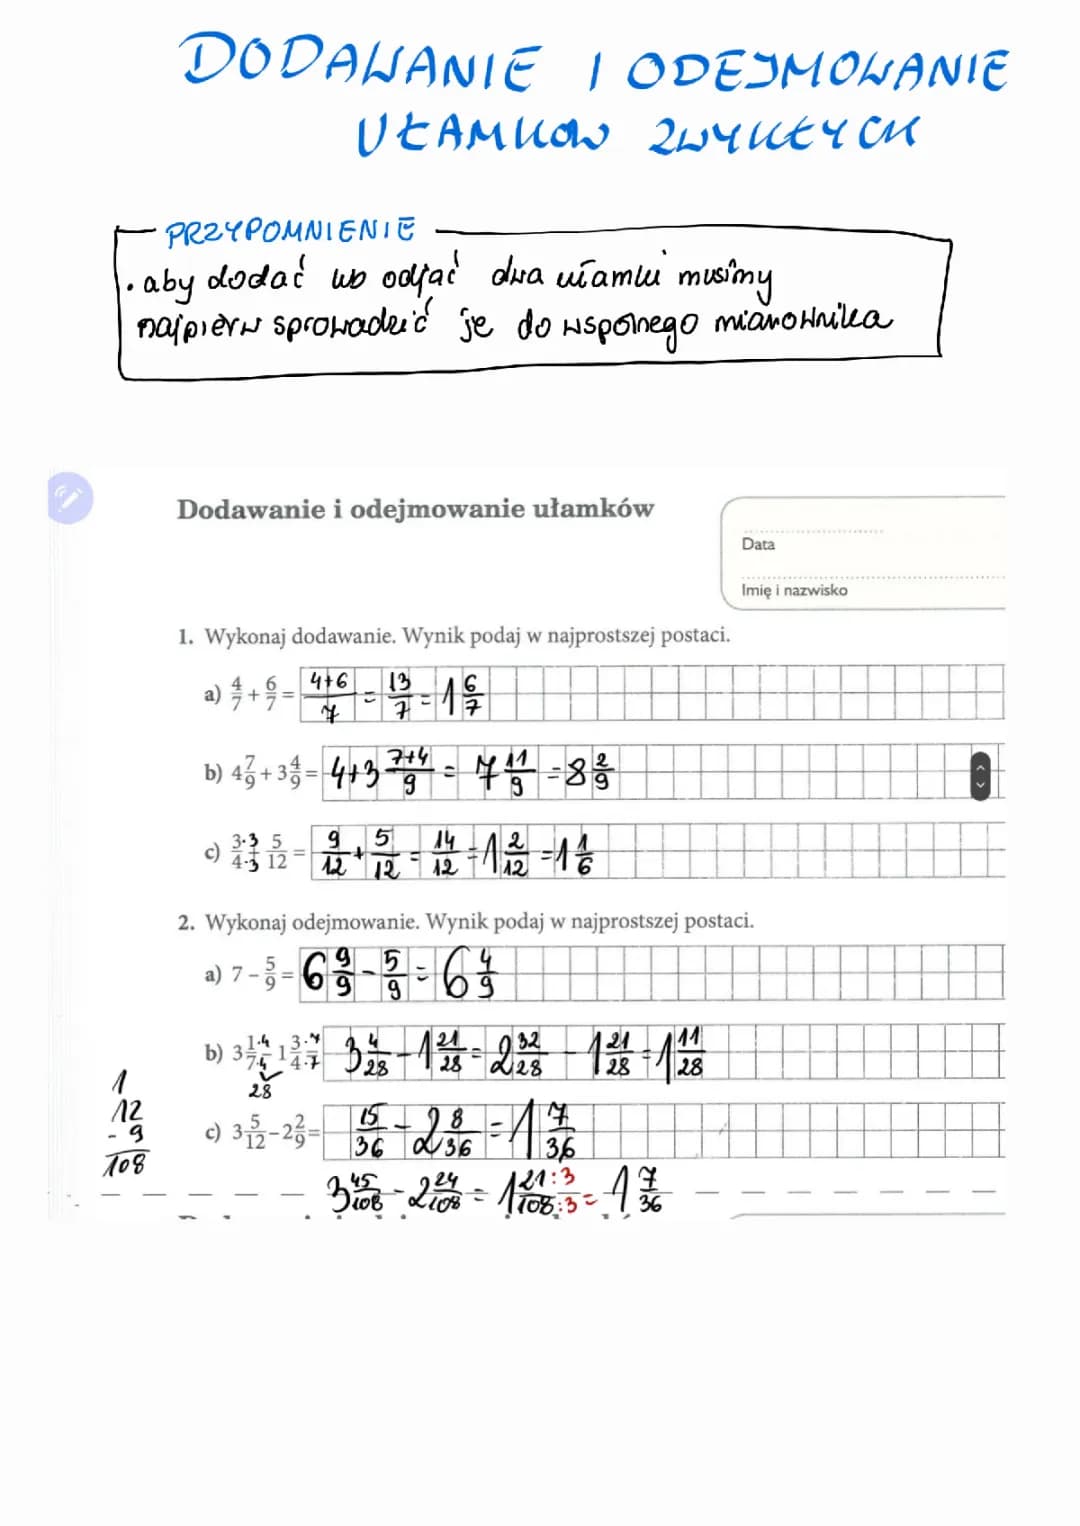 DODAWANIE I ODEJMOWANIE
UŁAMKÓW ZWYKŁYCH
PRZYPOMNIENIE
• aby dodać lub odjąć dwa ułamki musimy
najpierw sprowadzić je do wspólnego mianownika
Dodawanie i odejmowanie ułamków
Data
Imię i nazwisko
1. Wykonaj dodawanie. Wynik podaj w najprostszej postaci.
a) 4/7 + 6/7 = (4+6)/7 = 13/7 = 1 6/7
b) 4 7/9 + 3 4/9 = 4+3 (7+4)/9 = 7 11/9 = 8 2/9
c) 3·3/4·3 + 5/12 = 9/12 + 5/12 = 14/12 = 1 2/12 = 1 1/6
2. Wykonaj odejmowanie. Wynik podaj w najprostszej postaci.
a) 7 - 5/9 = 6 9/9 - 5/9 = 6 4/9
b) 3 1·4/7·4 - 1 3·7/4·7 = 3 4/28 - 1 21/28 = 2 32/28 - 1 21/28 = 1 11/28
28
c) 3 5/12 - 2 2/9 = 15/36 - 2 8/36 = 1 7/36
1
12
- 9
108
3 45/108 - 2 24/108 = 1 21:3/108:3 = 1 7/36